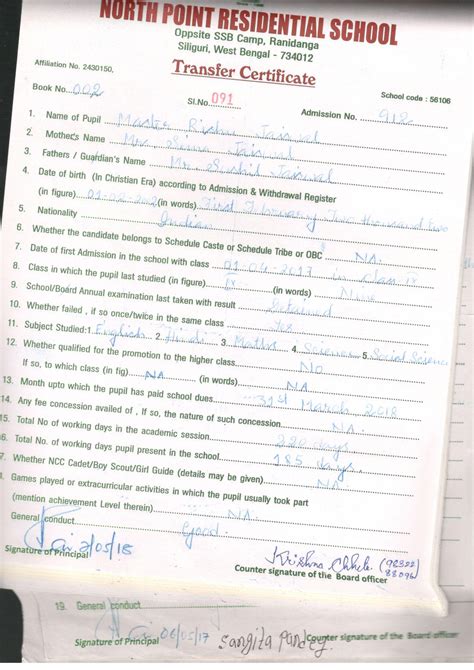 NORTH POINT RESIDENTIAL SCHOOL
Oppsite SSB Camp, Ranidanga
Siliguri, West Bengal - 734012
Affiliation No. 2430150,
Transfer Certificate
School code : 56106
Book No. 002
Sl.No. 091
Admission No. 912
1. Name of Pupil Master Rishu Jaiswal
2. Mother's Name Mrs. Jaiswal
3. Fathers / Guardian's Name Mr. Sushil Jaiswal
4. Date of birth (In Christian Era) according to Admission & Withdrawal Register
(in figure) (in words) First February Two thousand
5. Nationality Indian
6. Whether the candidate belongs to Schedule Caste or Schedule Tribe or OBC NA
7. Date of first Admission in the school with class 01-04-2017 in class
8. Class in which the pupil last studied (in figure) IX (in words) Nine
9. School/Board Annual examination last taken with result Detained
10. Whether failed , if so once/twice in the same class Yes
11. Subject Studied:1. English 2. Hindi 3. Maths 4. Science 5. Social Science
12. Whether qualified for the promotion to the higher class No
If so, to which class (in fig) NA (in words) NA
13. Month upto which the pupil has paid school dues 31st March 2018
14. Any fee concession availed of , If so, the nature of such concession NA
15. Total No of working days in the academic session 220 days
6. Total No. of working days pupil present in the school 185 days
7. Whether NCC Cadet/Boy Scout/Girl Guide (details may be given) NA
Games played or extracurricular activities in which the pupil usually took part
(mention achievement Level therein) NA
General conduct Good
/05/18
Signature of Principal
Krishna
Counter signature of the Board officer
19. General conduct
06/05/17 Sangita Pandey
Signature of Principal Counter signature of the Board officer